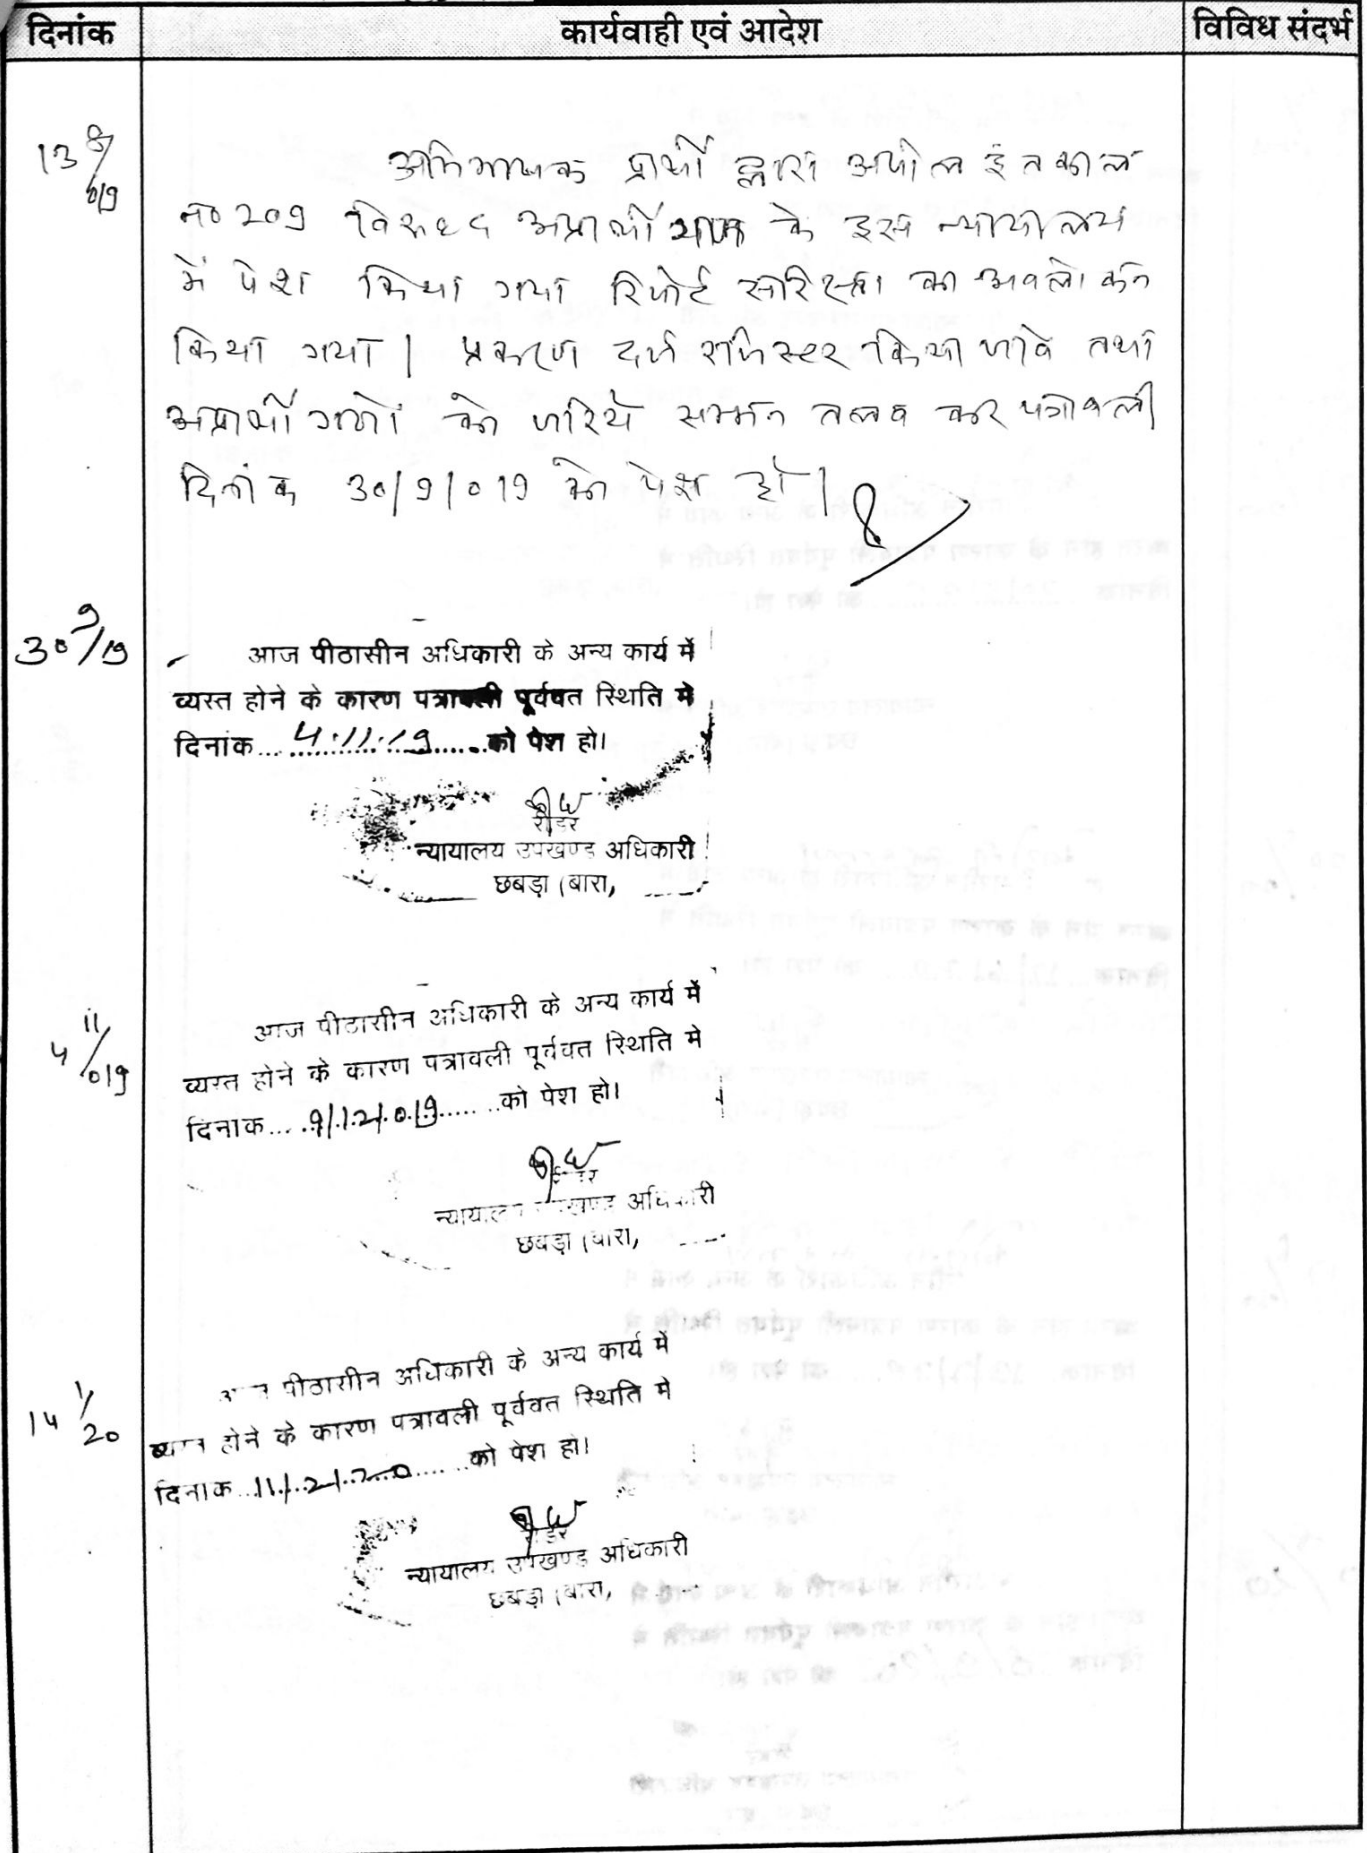 दिनांक कार्यवाही एवं आदेश विविध संदर्भ
13 8/019 अभिभाषक प्रार्थी द्वारा अपील इंतकाल
न0 209 विरुध्द अप्रार्थीगण के इस न्यायालय
में पेश किया गया रिपोर्ट सरिस्ता का अवलोकन
किया गया। प्रकरण दर्ज रजिस्टर किया जावे तथा
अप्रार्थीगणों को जरिये सम्मन तलब कर पत्रावली
दिनांक 30/9/019 को पेश हो।
30 9/19 आज पीठासीन अधिकारी के अन्य कार्य में
व्यस्त होने के कारण पत्रावली पूर्ववत स्थिति मे
दिनांक... 4.11.19 ......को पेश हो।
रीडर
न्यायालय उपखण्ड अधिकारी
छबड़ा (बारा,
4 11/019 आज पीठासीन अधिकारी के अन्य कार्य में
व्यस्त होने के कारण पत्रावली पूर्ववत स्थिति मे
दिनाक.... 9/12/019 ......को पेश हो।
न्यायालय उपखण्ड अधिकारी
छबड़ा (बारा,
14 1/20 आज पीठासीन अधिकारी के अन्य कार्य में
व्यस्त होने के कारण पत्रावली पूर्ववत स्थिति मे
दिनाक... 11/2/20 ......को पेश हो।
रीडर
न्यायालय उपखण्ड अधिकारी
छबड़ा (बारा,